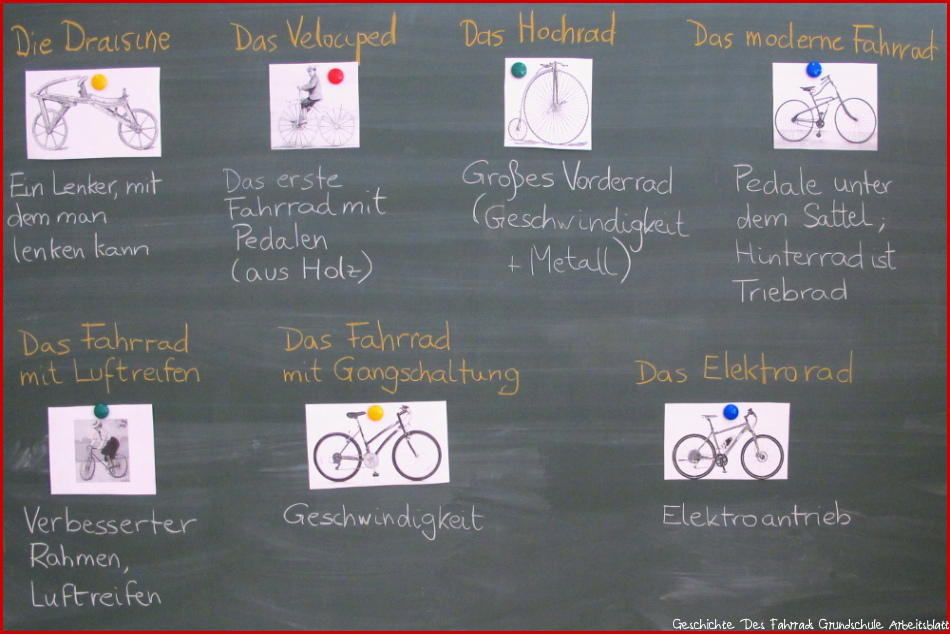 Die Draisine
Ein Lenker, mit
dem man
lenken kann
Das Velociped
Das erste
Fahrrad mit
Pedalen
(aus Holz)
Das Hochrad
Großes Vorderrad
(Geschwindigkeit
+ Metall)
Das moderne Fahrrad
Pedale unter
dem Sattel;
Hinterrad ist
Triebrad
Das Fahrrad
mit Luftreifen
Verbesserter
Rahmen,
Luftreifen
Das Fahrrad
mit Gangschaltung
Geschwindigkeit
Das Elektrorad
Elektroantrieb
Geschichte Des Fahrrads Grundschule Arbeitsblatt